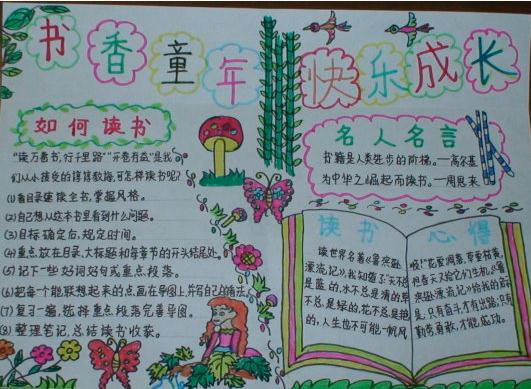 书香童年 快乐成长
如何读书
"读万卷书,行千里路""开卷有益"是我
们从小接受的谆谆教诲,可怎样读书呢?
(1)看目录速读全书,掌握风格。
(2)自己想从这本书里看到什么问题。
(3)目标确定后,规定时间。
(4)重点放在目录、大标题和每章节的开头结尾处。
(5)记下一些好词好句或重点段落。
(6)把每个能联想起来的点画在导图上,并写自己的看法。
(7)复习一编,选择重点段落完善导图。
(8)整理笔记,总结读书收获。
名人名言
书籍是人类进步的阶梯。—高尔基
为中华之崛起而读书。—周恩来
读书
读世界名著《鲁滨孙
漂流记》,我知道了:天不总
是蓝的,水不总是清的,草
不总是绿的,花不总是艳
的,人生也不可能一帆风
心得
顺!花爱凋落,草要枯黄,
但春天又给它们生机。《鲁
滨孙漂流记》给我的启示
是,只有奋斗,才有出路;只有
勤劳勇敢,才能成功。